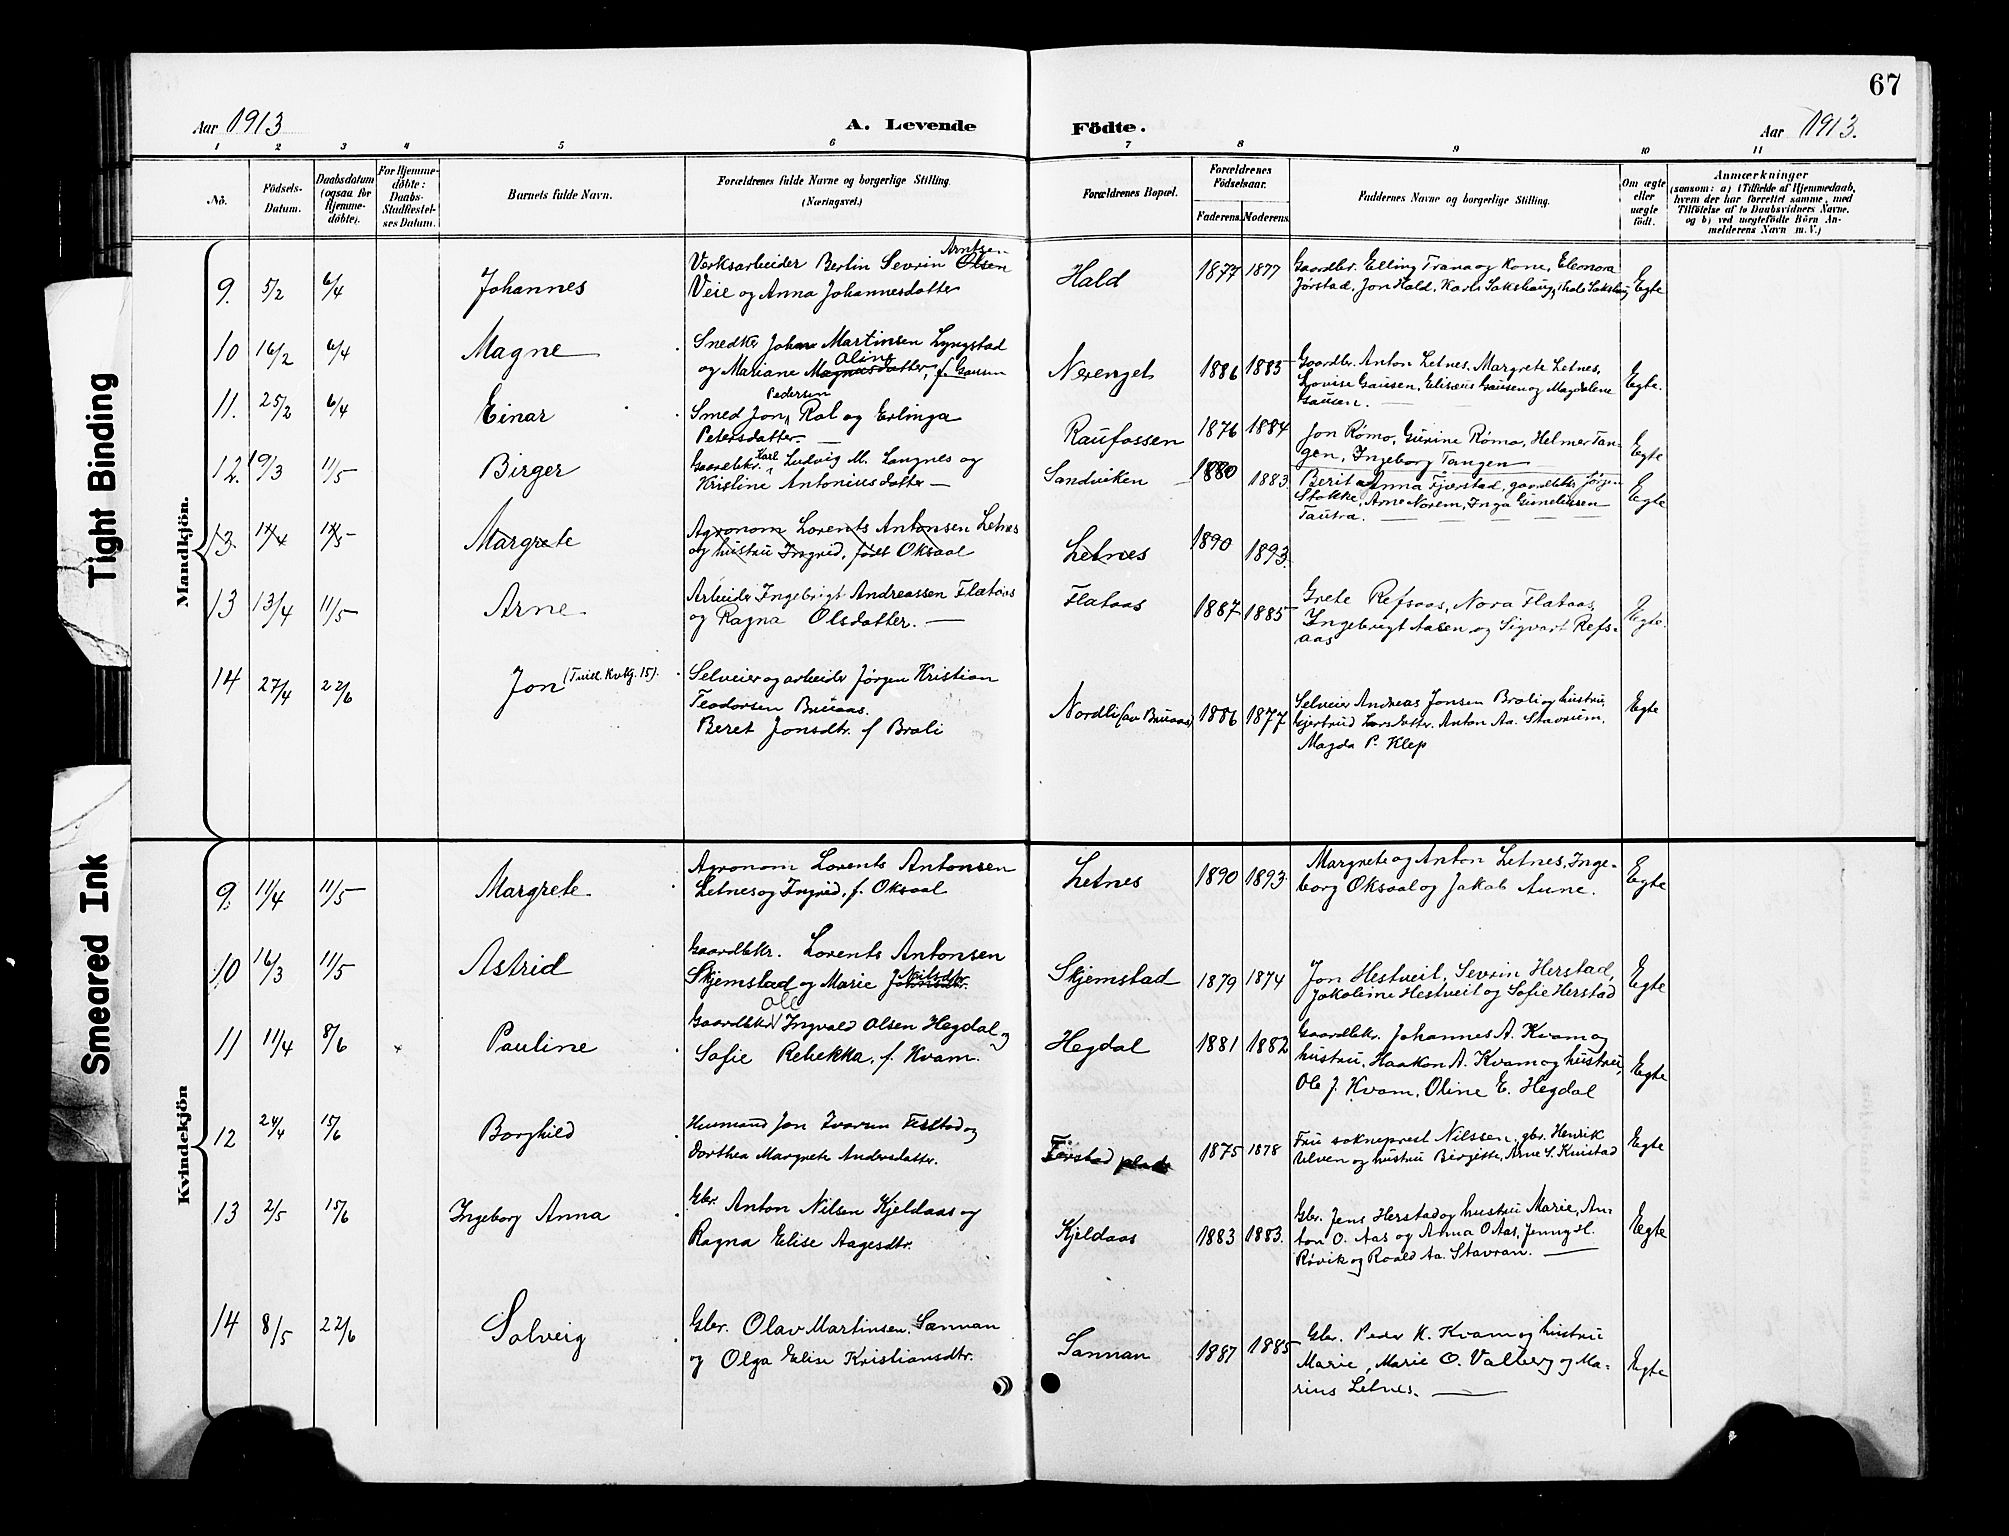 67
Aar 1913
A. Levende
Födte.
Aar 1913.
1 2 3 4 5 6 7 8 9 10 11
No.
Födsels-
Datum.
Daabsdatum
(ogsaa for
Hjemme-
døbte).
For Hjemme-
døbte:
Daabs-
Stadfæstel-
ses Datum.
Barnets fulde Navn.
Forældrenes fulde Navne og borgerlige Stilling.
(Næringsvei.)
Forældrenes Bopæl.
Forældrenes
Födselsaar.
Faderens.
Moderens.
Faddernes Navne og borgerlige Stilling.
Om ægte
eller
uægte
født.
Anmærkninger
(saasom: a) i Tilfælde af Hjemmedaab,
hvem der har forrettet samme, med
Tilföielse af to Daabsvidners Navne,
og b) ved uegtefödte Börn An-
melderens Navn m. V.)
Tight Binding
Smeared Ink
Mandkjön.
9. 5/2 6/4 Johannes
Arntsen
Verksarbeider Berlin Severin Olsen
Veie og Anna Johannesdatter
Hald 1877 1877
Gaardbr. Elling Trana og Kone, Eleonora
Jørstad, Jon Hald, Karl Sakshaug,
Egte
10 16/2 6/4 Magne
Snedker Johan Martinsen Lyngstad
Oline
og Mariane Magnusdatter, f. Gausen
Nerenget 1886 1885
Gaardbr. Anton Letnes, Margrete Letnes,
Lovise Gausen, Elisæus Gausen og Magdalene
Gausen.
Egte.
11. 25/2 6/4 Einar
Pedersen
Smed Jon Rol og Erlinga
Petersdatter
Raufossen 1876 1884
Jon Rømo, Gurine Rømo, Helmer Tan-
gen, Ingeborg Tangen
Egte
12. 19/3 11/5 Birger
Gaardbkr. Karl Ludvig M. Langnes og
Kristine Antoniusdatter
Sandviken 1880 1883
Berit og Anna Fjerstad, gaardbkr. Jørgen
Stokke, Arne Norem, Inga Guneliussen
Tautra.
Egte
13. 11/4 11/5 Margrete
Agronom Lorents Antonsen Letnes
og hustru Ingrid, født Oksaal
Letnes 1890 1893.
13 13/4 11/5 Arne
Arbeider Ingebrigt Andreassen Flataas
og Ragna Olsdatter.
Flataas 1887 1885
Grete Refsaas, Nora Flataas,
Ingebrigt Aasen og Sigvart Refs-
aas
Egte.
14 27/4 22/6 Jon (Tvill. Kvkj. 15).
Selveier og arbeider Jørgen Kristian
Teodorsen Bruaas.
Beret Jonsdtr. f Brali
Nordli (av Bruaas) 1886 1877
Selveier Andreas Jonsen Brali og hustru
Gjertrud Larsdatter. Anton Aa. Stavrum.
Magda P. Klep
Egte
Kvindekjön
9. 11/4 11/5 Margrete
Agronom Lorents Antonsen
Letnes og Ingrid, f. Oksaal
Letnes 1890 1893
Margrete og Anton Letnes, Inge-
borg Oksaal og Jakob Aune.
Egte
10 16/3 11/5 Astrid
Gaardbkr. Lorents Antonsen
Skjemstad og Marie Nilsdtr.
Skjemstad 1879 1874
Jon Hestveit, Severin Herstad,
Jakobine Hestveit og Sofie Herstad
Egte
11 11/4 8/6 Pauline
Ole
Gaardbkr Ingvald Olsen Hegdal og
Sofie Rebekka, f. Kvam.
Hegdal 1881 1882
Gaardbkr. Johannes A. Kvam og
hustru, Haakon A. Kvam og hustru,
Ole J. Kvam, Oline E. Hegdal
Egte
12 24/4 15/6 Borghild
Husmand Jon Ivarsen Fistad og
Dorthea Margrete Andersdatter.
plads 1875 1878
Fru sokneprest Nilssen, gbr. Henrik
Ulven og hustru Birgitte, Arne S. Kunstad
Egte
13 2/5 15/6 Ingeborg Anna
Gbr. Anton Nilsen Kjeldaas og
Ragna Elise Aagesdtr.
Kjeldaas 1883 1883.
Gbr. Jens Herstad og hustru Marie, An-
ton O. Aas og Anna O Aas, Jenny H.
Røvik og Roald Aa. Stavran.
Egte
14 8/5 22/6 Solveig
Gbr. Olav Martinsen Sannan
og Olga Elise Kristiansdtr.
Sannan 1887 1885
Gbr. Peder K. Kvam og hustru
Marie, Marie O. Valberg og Ma-
rius Letnes.
Egte